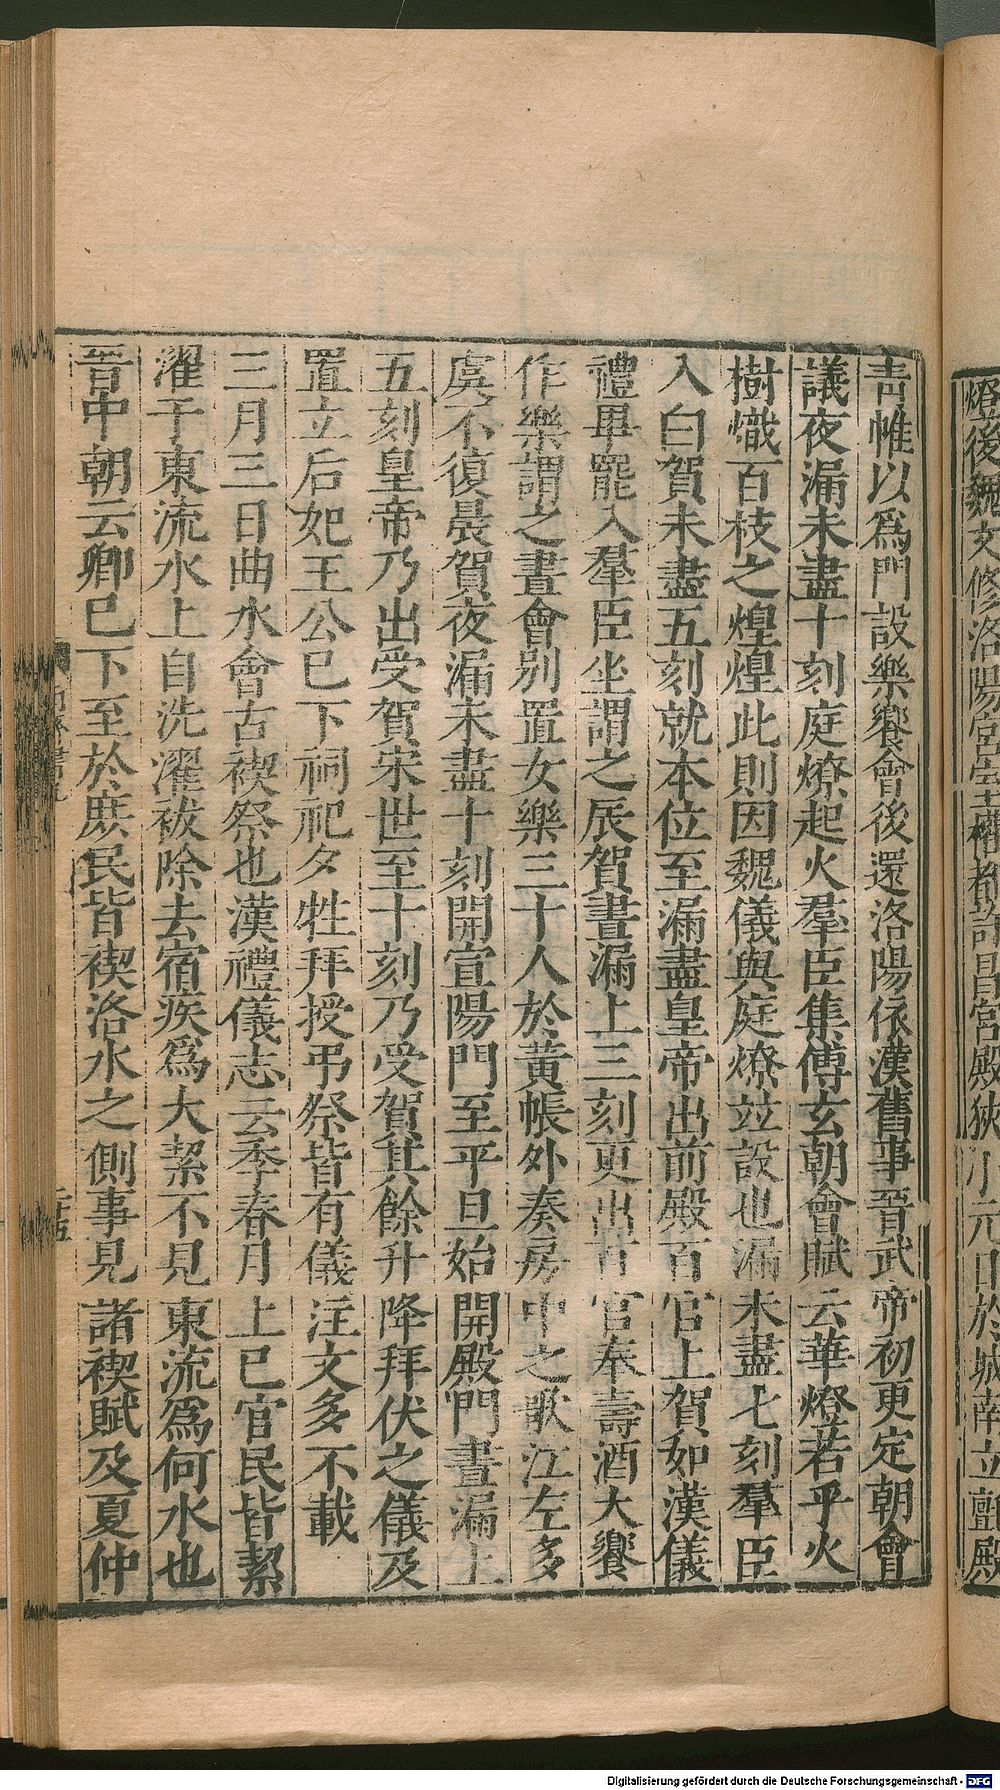 燎後魏文修洛陽宮室權都許昌宮殿狹小元日於城南立氊殿
青帷以爲門設樂饗會後還洛陽依漢舊事晉武帝初更定朝會
議夜漏未盡十刻庭燎起火羣臣集傅玄朝會賦云華燈若乎火
樹熾百枝之煌煌此則因魏儀與庭燎竝設也漏未盡七刻羣臣
入白賀未盡五刻就本位至漏盡皇帝出前殿百官上賀如漢儀
禮畢罷入羣臣坐謂之辰賀晝漏上三刻更出百官奉壽酒大饗
作樂謂之晝會別置女樂三十人於黃帳外奏房中之歌江左多
虞不復晨賀夜漏未盡十刻開宣陽門至平旦始開殿門晝漏上
五刻皇帝乃出受賀宋世至十刻乃受賀其餘升降拜伏之儀及
置立后妃王公已下祠祀夕牲拜授弔祭皆有儀注文多不載
三月三日曲水會古禊祭也漢禮儀志云季春月上巳官民皆絜
濯于東流水上自洗濯祓除去宿疾爲大絜不見東流爲何水也
晉中朝云卿已下至於庶民皆禊洛水之側事見諸禊賦及夏仲
Digitalisierung gefördert durch die Deutsche Forschungsgemeinschaft - DFG